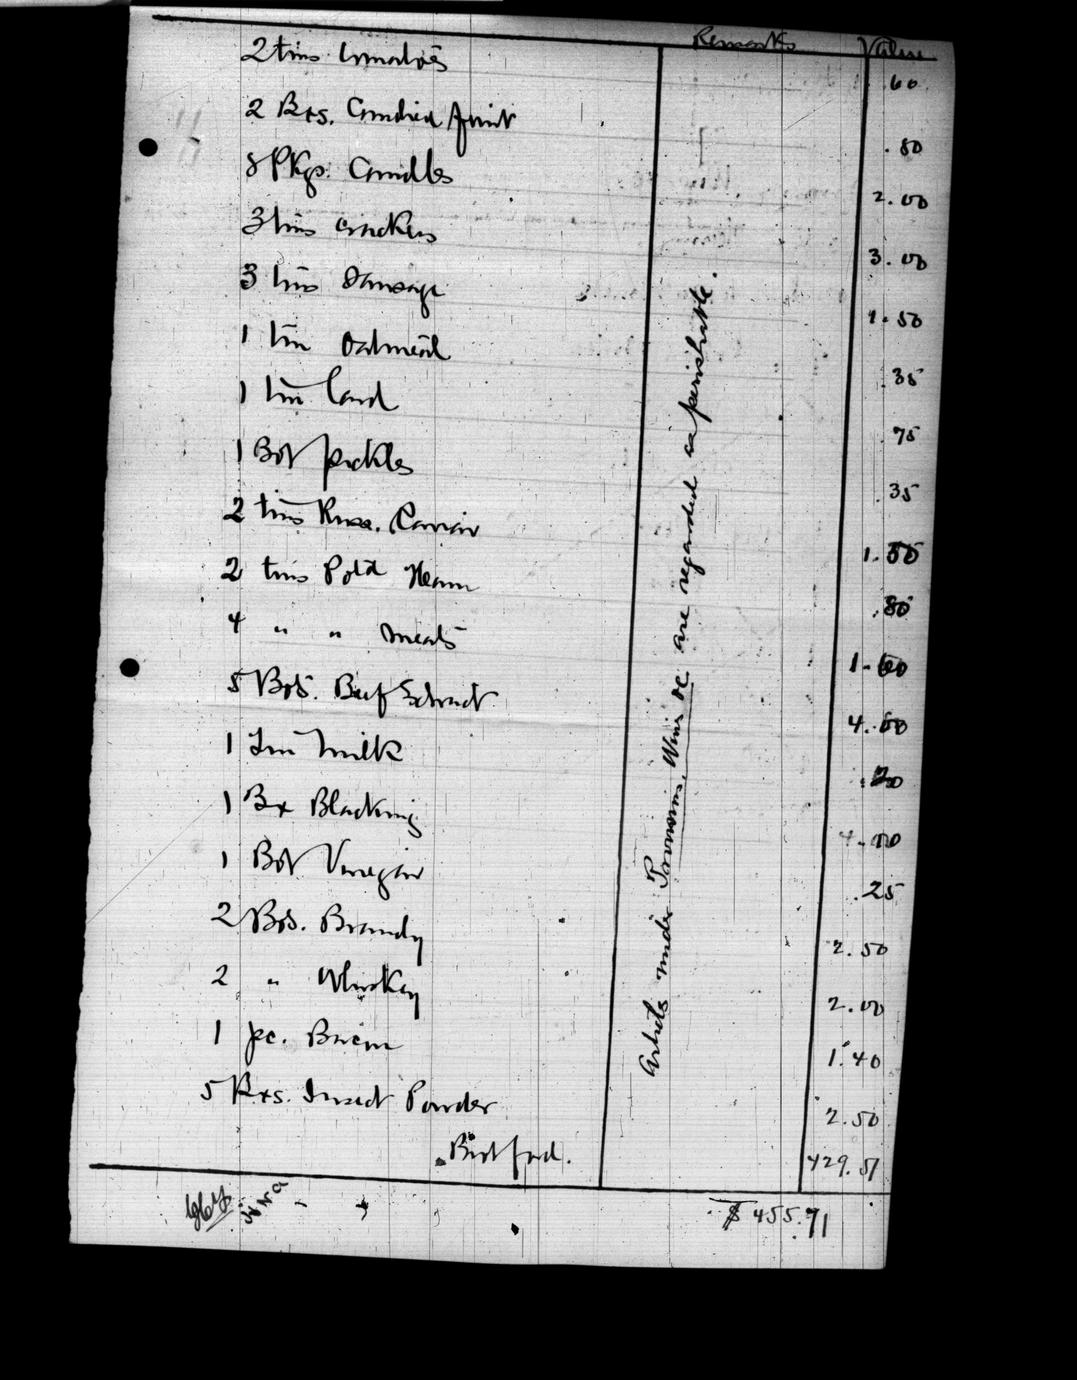 Remarks Value
2 tins tomatoes .60
2 Bxs. Candied fruit .80
8 Pkgs. Candles 2.00
3 tins crackers 3.00
3 tins Sausage 1.50
1 tin Oatmeal .35
1 tin lard .75
1 Bot pickles .35
2 tins Russ. Caviar
2 tins Pot'd Ham .80
4 " " meats 1.60
5 Bots. Beef Extract 4.00
1 tin milk .20
1 Bx Blacking
1 Bot Vinegar .25
2 Bots. Brandy 2.50
2 " Whiskey 2.00
1 pc. Bacon 1.40
5 Bxs. Insect Powder 2.50
Brot ford. 429.51
$455.71
Articls under Provisions, Wins &c are regarded as perishable.